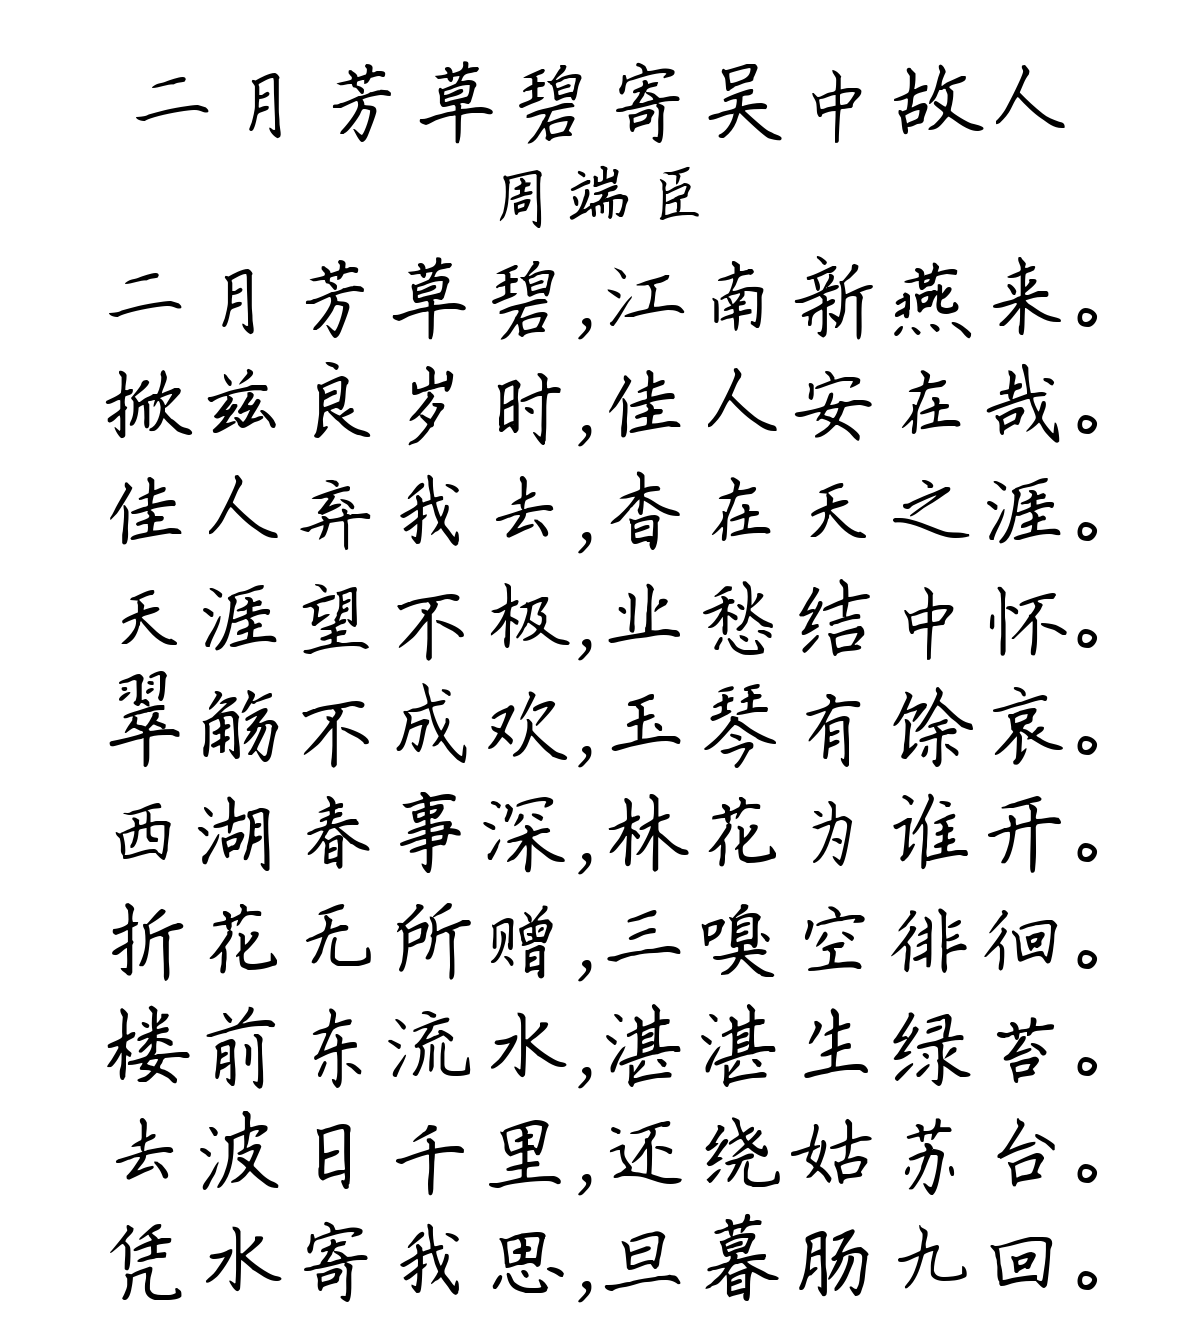 二月芳草碧寄吴中故人
周端臣
二月芳草碧,江南新燕来。
掀兹良岁时,佳人安在哉。
佳人弃我去,杳在天之涯。
天涯望不极,业愁结中怀。
翠觞不成欢,玉琴有馀哀。
西湖春事深,林花为谁开。
折花无所赠,三嗅空徘徊。
楼前东流水,湛湛生绿苔。
去波日千里,还绕姑苏台。
凭水寄我思,旦暮肠九回。